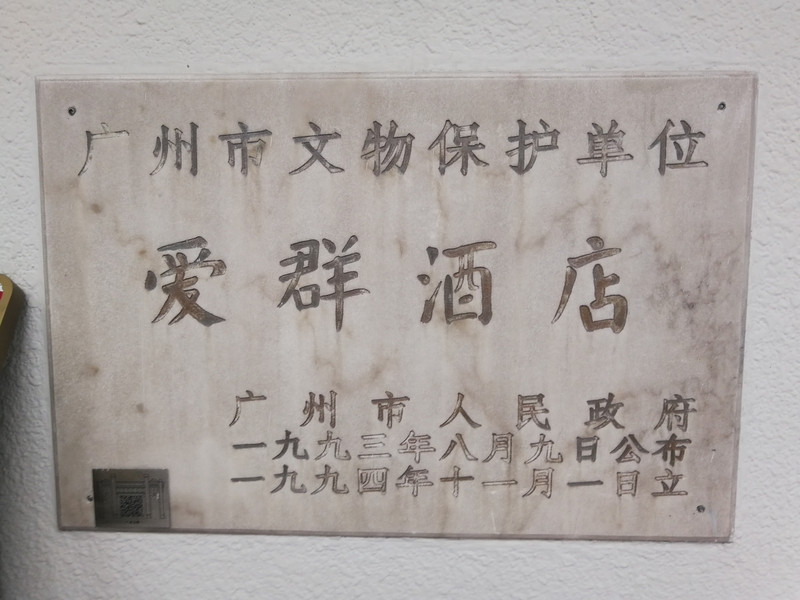 广州市文物保护单位
爱群酒店
广州市人民政府
一九九三年八月九日公布
一九九四年十一月一日立